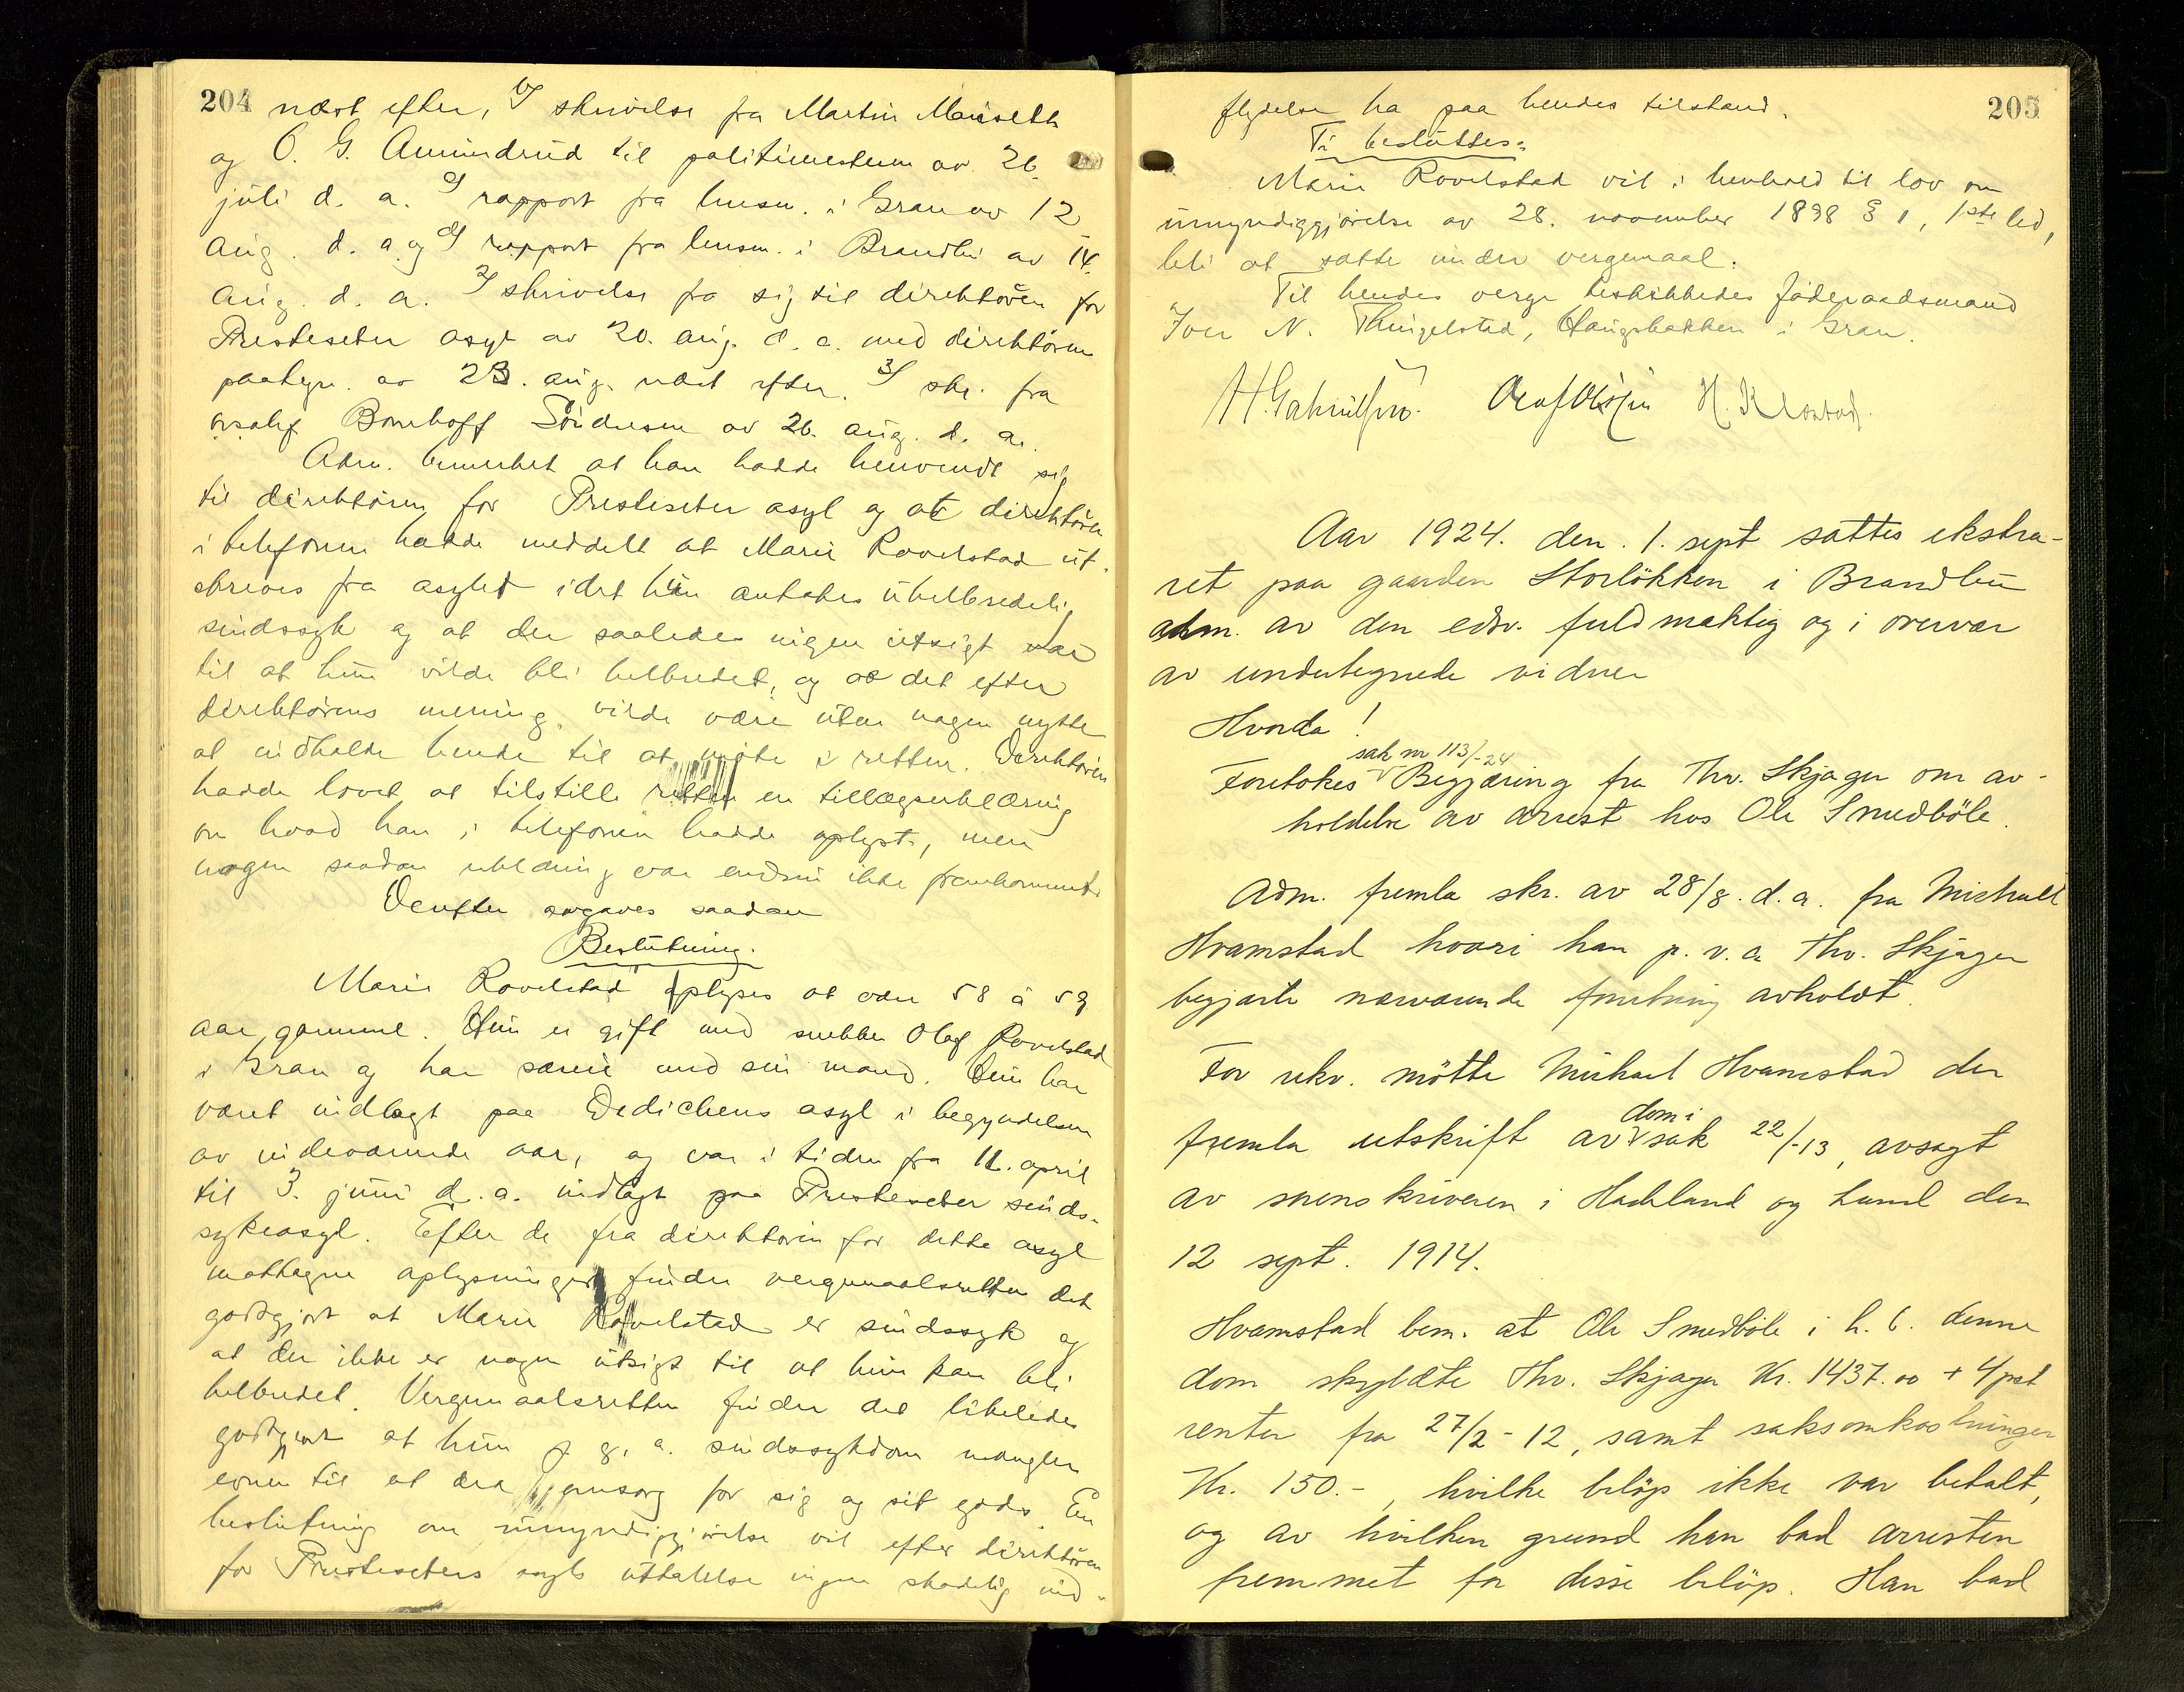 204 næst efter, b) skrivelse fra Martin
og O. G. Amundrud til politimesteren av 26.
juli d. a. c) rapport fra lensm. i Gran av 12
aug. d. a. og d) rapport fra lensm. i Brandbu av 14.
aug. d. a. 2) skrivelse fra sig til direktøren for
Presteseter asyl av 20. aug. d. a. med direktørens
paategn. av 23. aug. næst efter. 3) skr. fra
Bonehoff av 26. aug. d. a.
Adm. bemerket at han hadde henvendt sig
til direktøren for Presteseter asyl og at direktøren
i telefonen hadde meddelt at Marie Rovelstad ut-
skreves fra asylet idet hun antakes uhelbredelig
sindssyk og at der saaledes ingen utsigt var
til at hun vilde bli helbredet, og at det efter
direktørens mening vilde være uten nogen nytte
at indkalde hende til at møte i retten. Direktøren
hadde lovet at tilstille retten en tillægserklæring
om hvad han i telefonen hadde oplyst, men
nogen saadan erklæring var endnu ikke fremkommet.
Derefter avgaves saadan
Beslutning.
Marie Rovelstad oplyses at være 58 à 59
aar gammel. Hun er gift med snekker Olaf Rovelstad
i Gran og har særeie med sin mand. Hun har
været indlagt paa Dedichens asyl i begyndelsen
av indeværende aar, og var i tiden fra 11. april
til 3. juni d. a. indlagt paa Presteseter sinds-
sykeasyl. Efter de fra direktøren for dette asyl
mottagne oplysninger finder vergemaalsretten det
godtgjort at Marie Rovelstad er sindssyk og
at der ikke er nogen utsigt til at hun kan bli
helbredet. Vergemaalsretten finder det likeledes
godtgjort at hun p. g. a. sindssykdom mangler
evnen til at dra omsorg for sig og sit gods. En
beslutning om umyndiggjørelse vil efter direktøren
for Presteseters asyls uttalelse ingen skadelig ind-
205
flydelse ha paa hendes tilstand.
Ti besluttes:
Marie Rovelstad vil i henhold til lov om
umyndiggjørelse av 28. november 1898 § 1, 1ste led,
bli at sætte under vergemaal.
Til hendes verge beskikkedes föderaadsmand
Iver N. Thingelstad, Haugsbakken i Gran.
H. Gabrielsen. Olaf Olsen H. Klæstad.
Aar 1924. den. 1. sept sattes ekstra-
ret paa gaarden Storlökken i Brandbu
adm. av den edsv. fuldmektig og i overvær
av undertegnede vidner
Hvorda!
sak nr 113/-24
Foretokes Begjæring fra Thv. Skjager om av-
holdelse av arrest hos Ole Smedböle.
Adm. fremla skr. av 28/8. d. a. fra Michael
Hvamstad hvori han p. v. a. Thv. Skjager
begjærte nærværende forretning avholdt.
For rekv. mötte Michael Hvamstad der
dom i
fremla utskrift av sak 22/-13, avsagt
av sorenskriveren i Hadeland og Land den
12 sept. 1914.
Hvamstad bem. at Ole Smedböle i h. t. denne
dom skyldte Thv. Skjager Kr. 1437.00 + 4 pct
renter fra 27/2-12, samt saksomkostninger
Kr. 150.-, hvilke belöp ikke var betalt,
og av hvilken grund han bad arresten
fremmet for disse belöp. Han bad